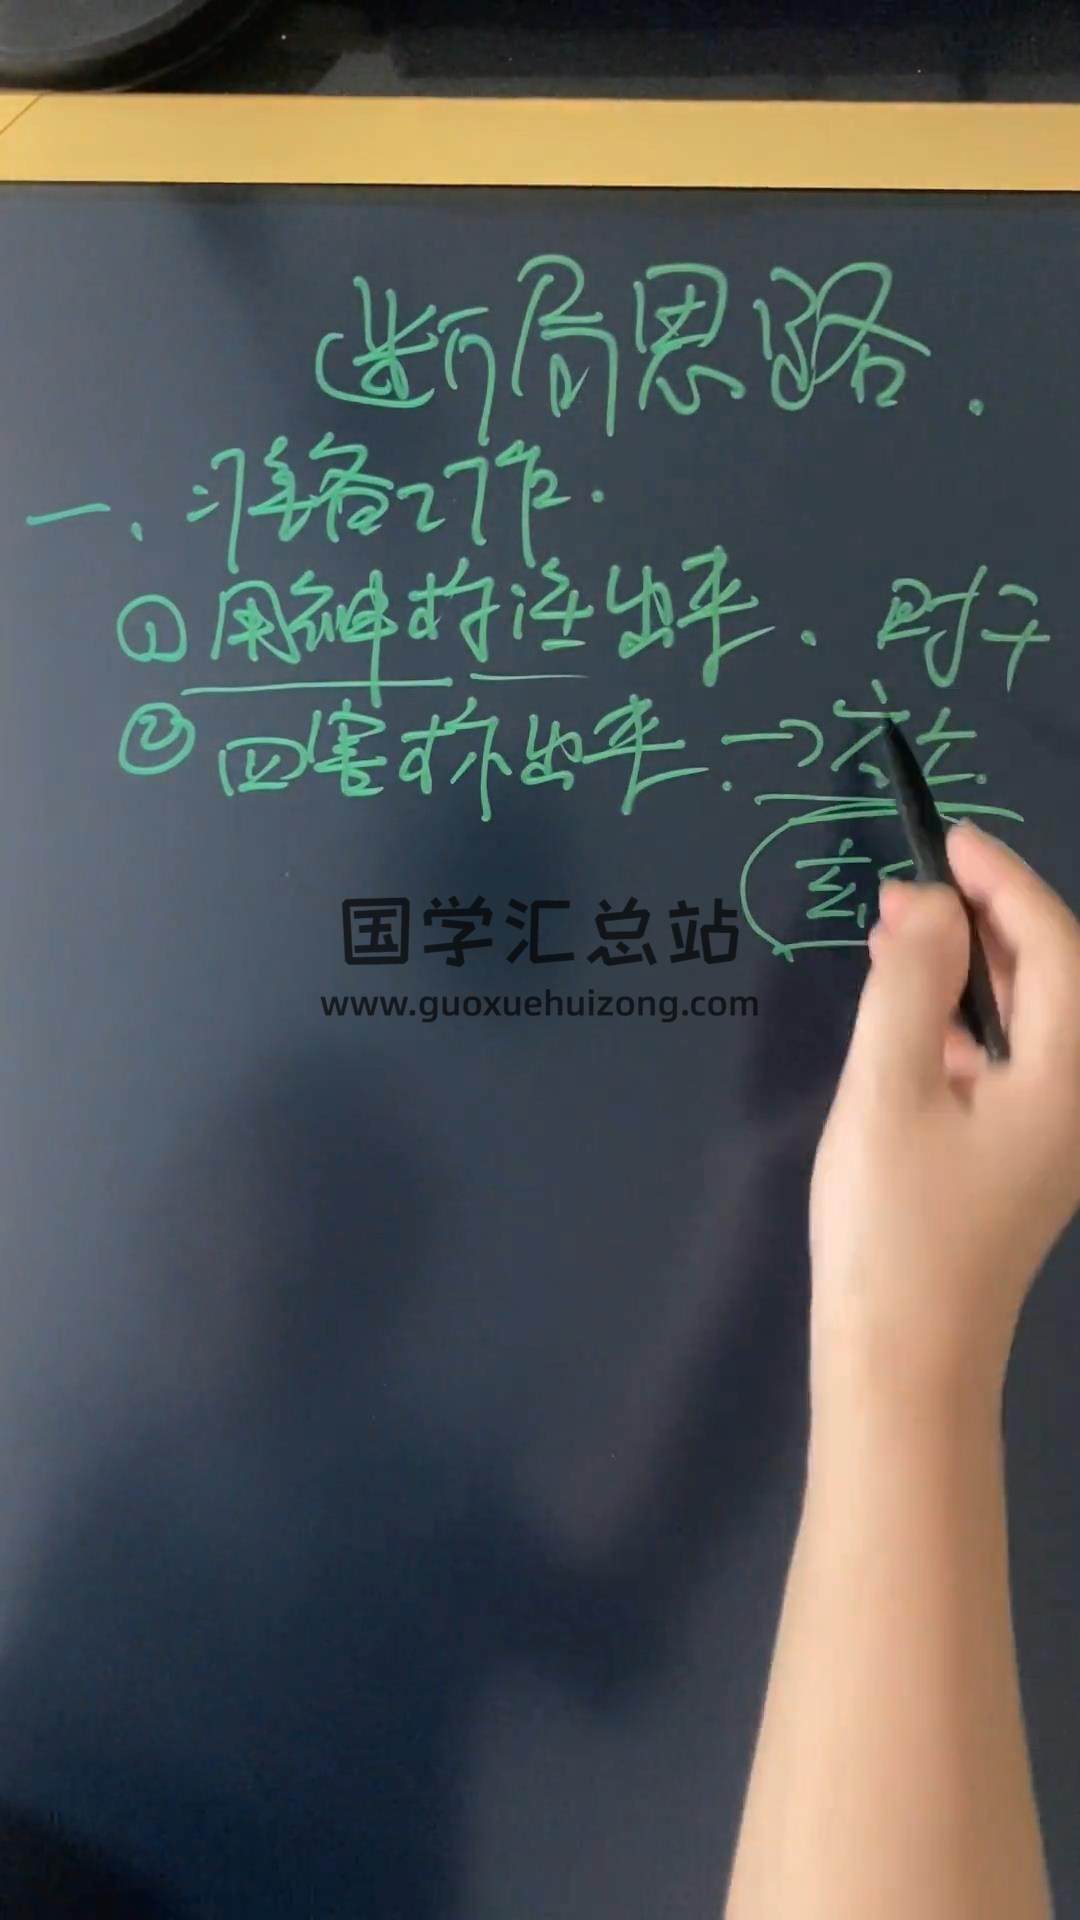 断局思路.
一、准备工作.
①用神标注出来. 时干
②四害标出来.→六
玄
国学汇总站
www.guoxuehuizong.com